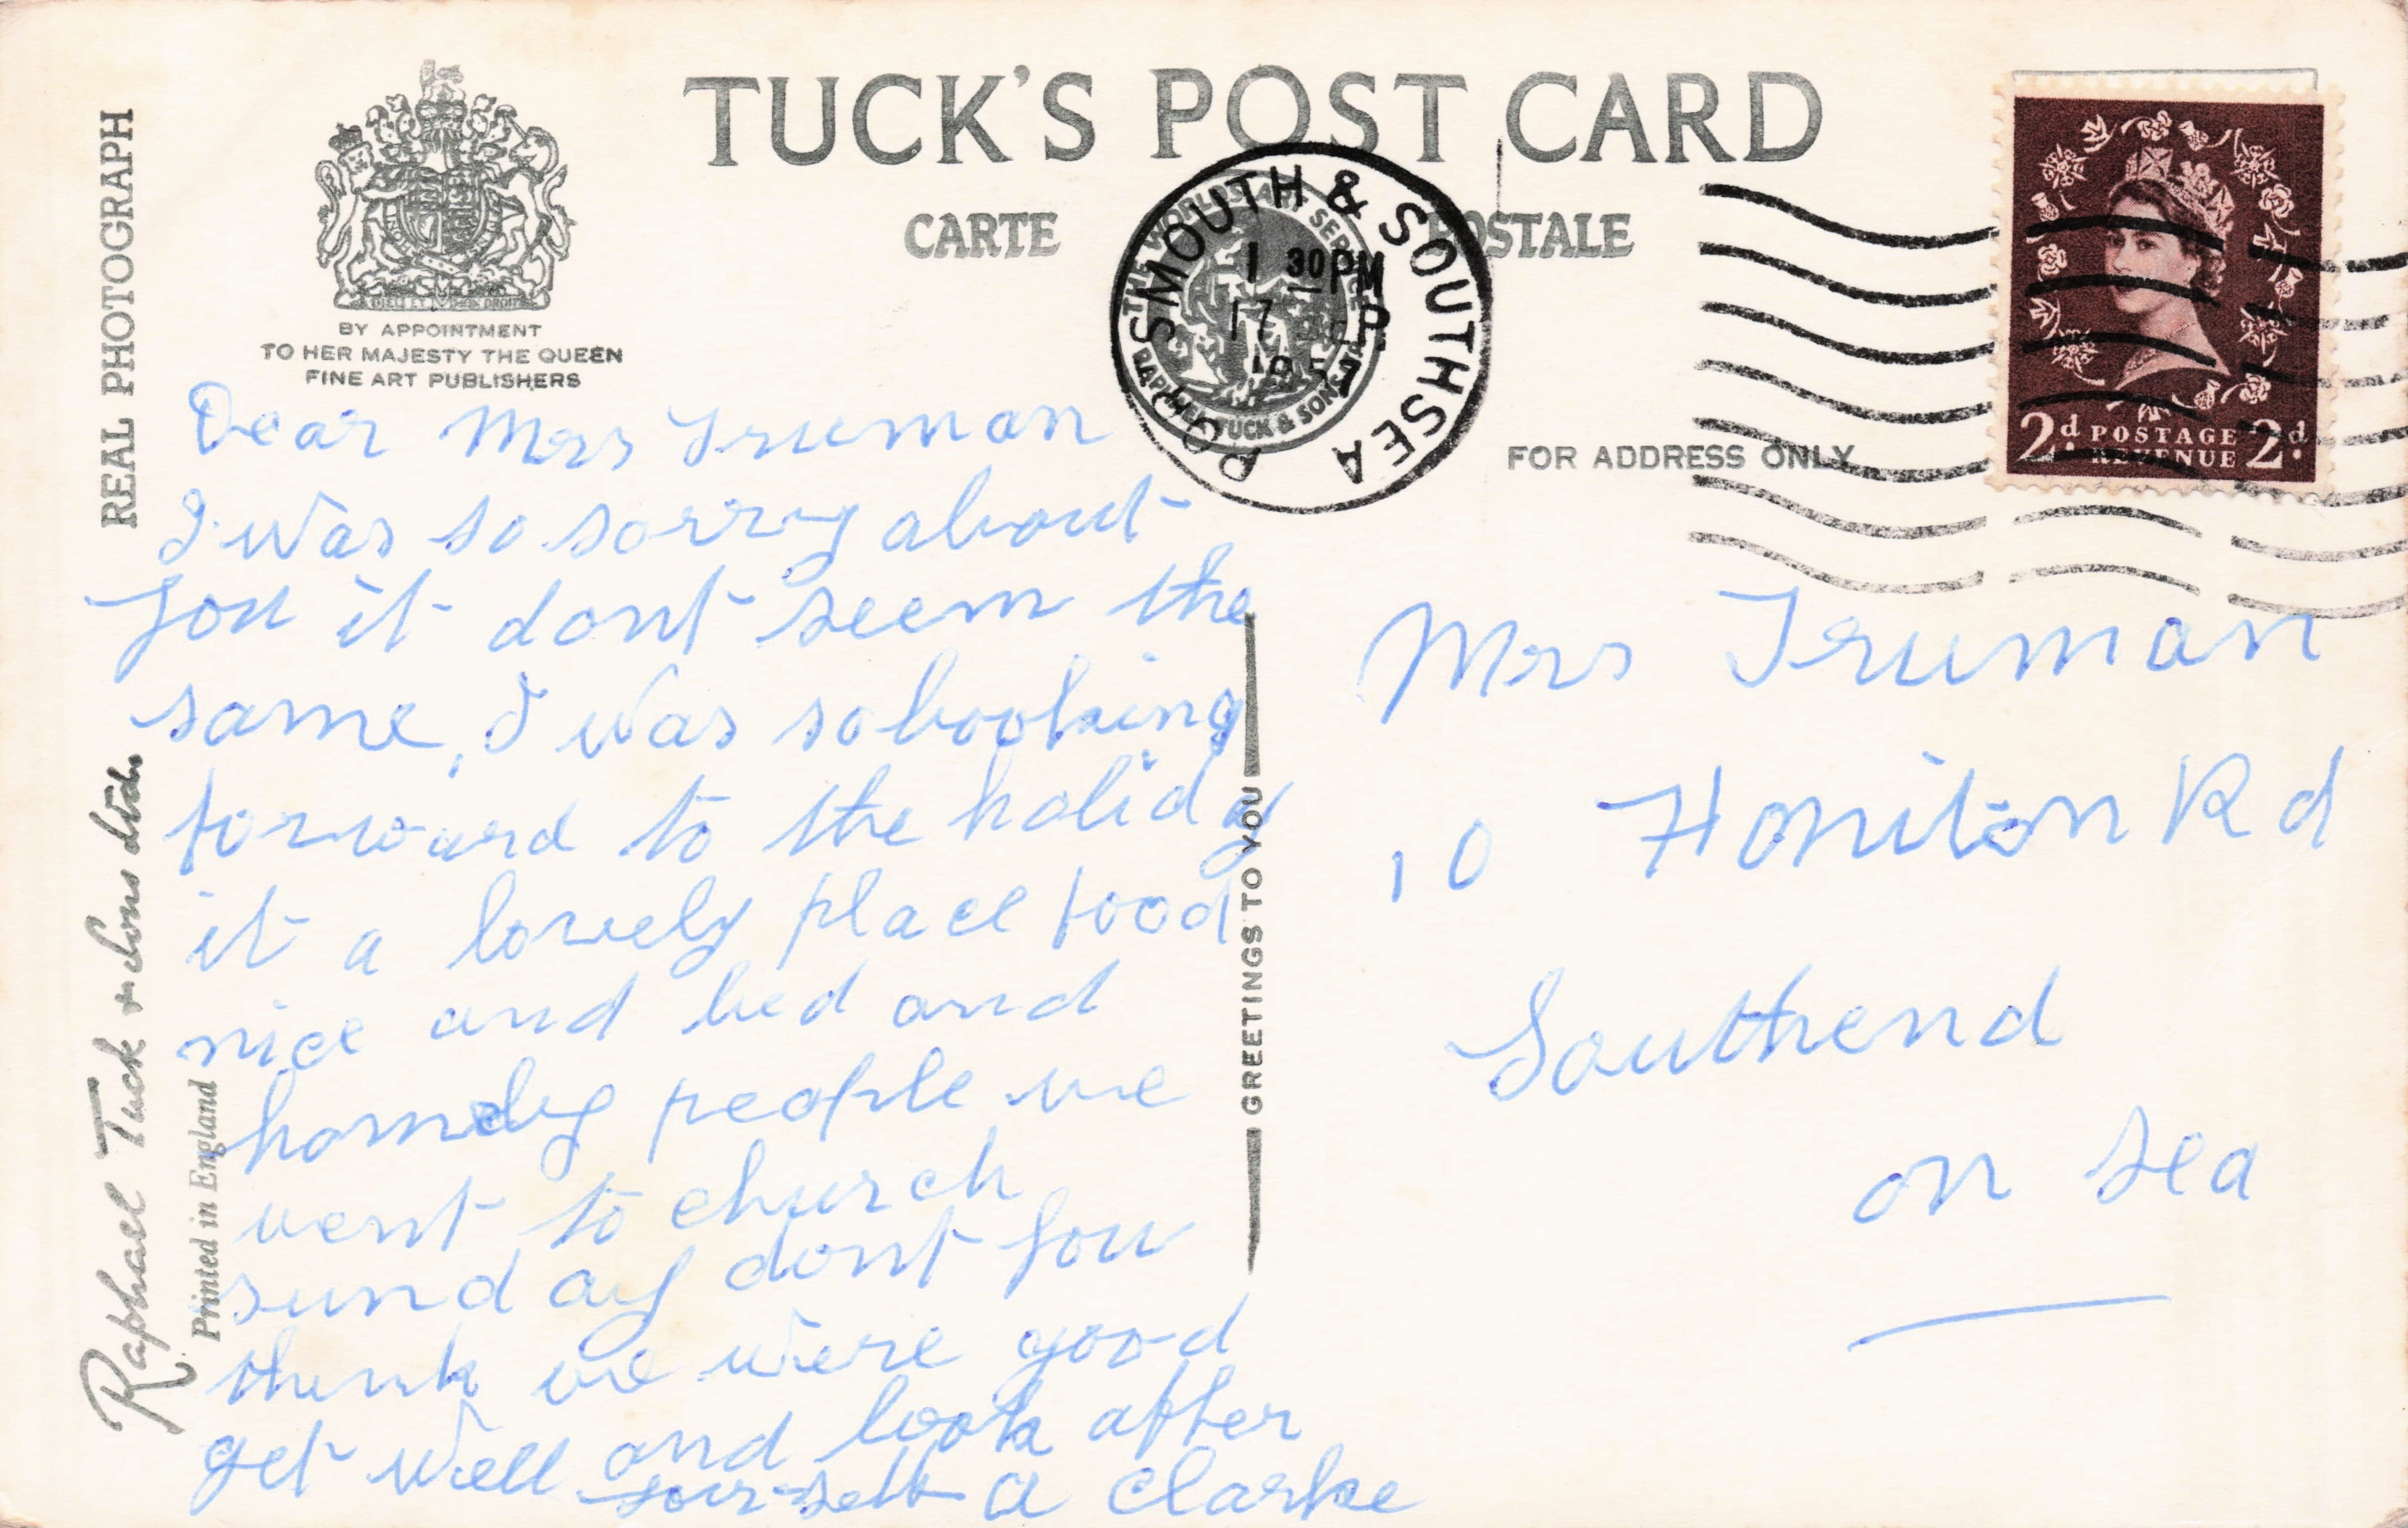 TUCK'S POST CARD
CARTE POSTALE
REAL PHOTOGRAPH
DIEU ET MON DROIT
BY APPOINTMENT
TO HER MAJESTY THE QUEEN
FINE ART PUBLISHERS
PORTSMOUTH & SOUTHSEA
1 30 PM
17 SEP
1957
RAPHAEL TUCK & SONS
FOR ADDRESS ONLY
2d POSTAGE 2d
REVENUE
Dear Mrs Truman
I was so sorry about
you it dont seem the
same, I was so looking
forward to the holidy
it a lovely place food
nice and bed and
homely people we
went to church
sunday dont you
think we were good
get well and look after
yourself a Clarke
Raphael Tuck & Sons Ltd.
Printed in England
GREETINGS TO YOU
Mrs Truman
10 Honiton Rd
Southend
on sea